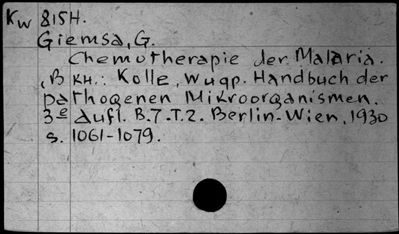 Kw 815H.
Giemsa, G.
Chemotherapie der Malaria.
(В кн.: Kolle, W u gp. Handbuch der
pathogenen Mikroorganismen.
3e Aufl. B.7.T.2. Berlin-Wien, 1930
s. 1061-1079.